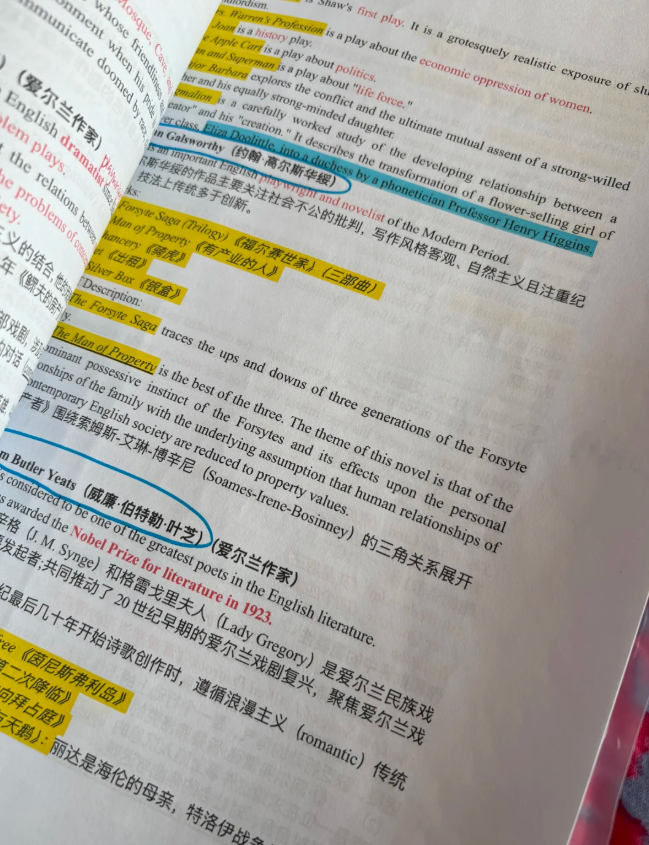 Mosque, Cave
whose friendliness
when his posi
communicate doomed by the
(爱尔兰作家)
English dramatist
plem plays.
the relations betw
he problems of
ety.
义的结合
is Shaw's first play. It is a grotesquely realistic exposure of slu
dlordism.
rs. Warren's Profession is a play about the economic oppression of women.
Joan is a history play.
e Apple Cart is a play about politics.
an and Superman is a play about "life force."
jor Barbara explores the conflict and the ultimate mutual assent of a strong-willed
her and his equally strong-minded daughter.
malion is a carefully worked study of the developing relationship between a
eator" and his "creation." It describes the transformation of a flower-selling girl of
er class, Eliza Doolittle, into a duchess by a phonetician Professor Henry Higgins.
n Galsworthy (约翰·高尔斯华绥)
an important English playwright and novelist of the Modern Period.
尔斯华绥的作品主要关注社会不公的批判,写作风格客观、自然主义且注重纪
技法上传统多于创新。
ks:
Forsyte Saga (Trilogy)《福尔赛世家》(三部曲)
Man of Property《有产业的人》
hancery《骑虎》
et《出租》
Silver Box《银盒》
Description:
The Forsyte Saga traces the ups and downs of three generations of the Forsyte
y.
The Man of Property is the best of the three. The theme of this novel is that of the
ominant possessive instinct of the Forsytes and its effects upon the personal
onships of the family with the underlying assumption that human relationships of
ontemporary English society are reduced to property values.
产者》围绕索姆斯-艾琳-博辛尼 (Soames-Irene-Bosinney) 的三角关系展开
m Butler Yeats (威廉·伯特勒·叶芝) (爱尔兰作家)
s considered to be one of the greatest poets in the English literature.
s awarded the Nobel Prize for literature in 1923.
辛格 (J. M. Synge) 和格雷戈里夫人 (Lady Gregory) 是爱尔兰民族戏
要发起者;共同推动了 20 世纪早期的爱尔兰戏剧复兴,聚焦爱尔兰戏
纪最后几十年开始诗歌创作时,遵循浪漫主义 (romantic) 传统
free《茵尼斯弗利岛》
第二次降临》
向拜占庭》
天鹅》:丽达是海伦的母亲,特洛伊战争